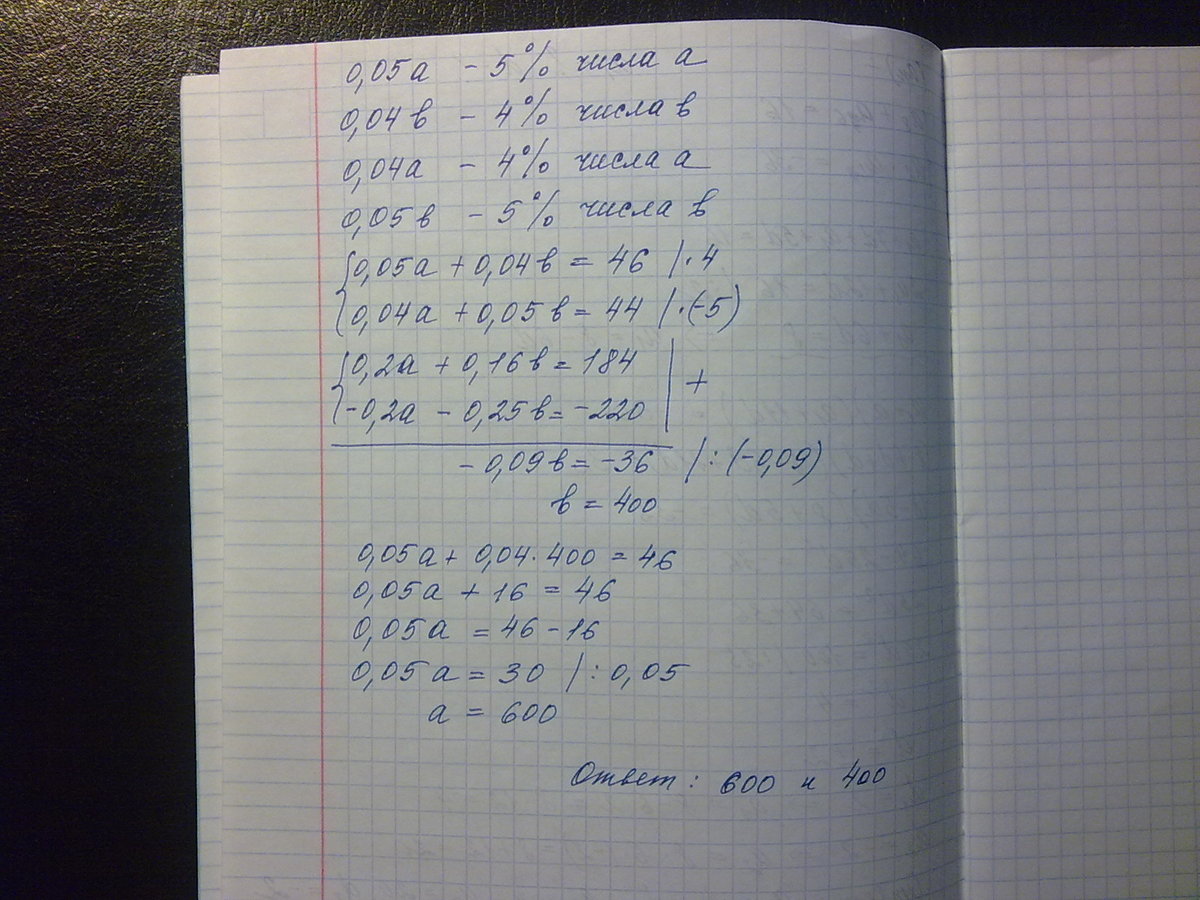 0,05а - 5% числа а
0,04в - 4% числа в
0,04а - 4% числа а
0,05в - 5% числа в
{0,05а + 0,04в = 46 |·4
{0,04а + 0,05в = 44 |·(-5)
{0,2а + 0,16в = 184
{-0,2а - 0,25в = -220 | +
-0,09в = -36 |:(-0,09)
в = 400
0,05а + 0,04·400 = 46
0,05а + 16 = 46
0,05а = 46 - 16
0,05а = 30 |:0,05
а = 600
Ответ: 600 и 400